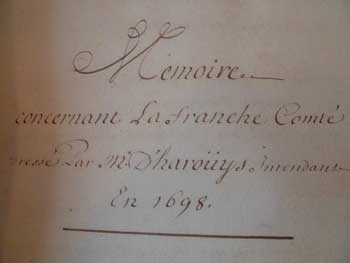 Memoire
concernant La franche Comté
Dressé Par Mr. D'haroüys Intendant
En 1698.